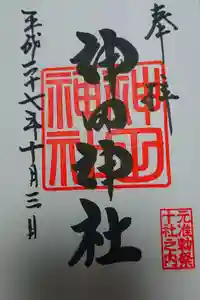 奉拝
神田神社
神田神社
平成二十七年十月三日
元准勅祭
十社之内